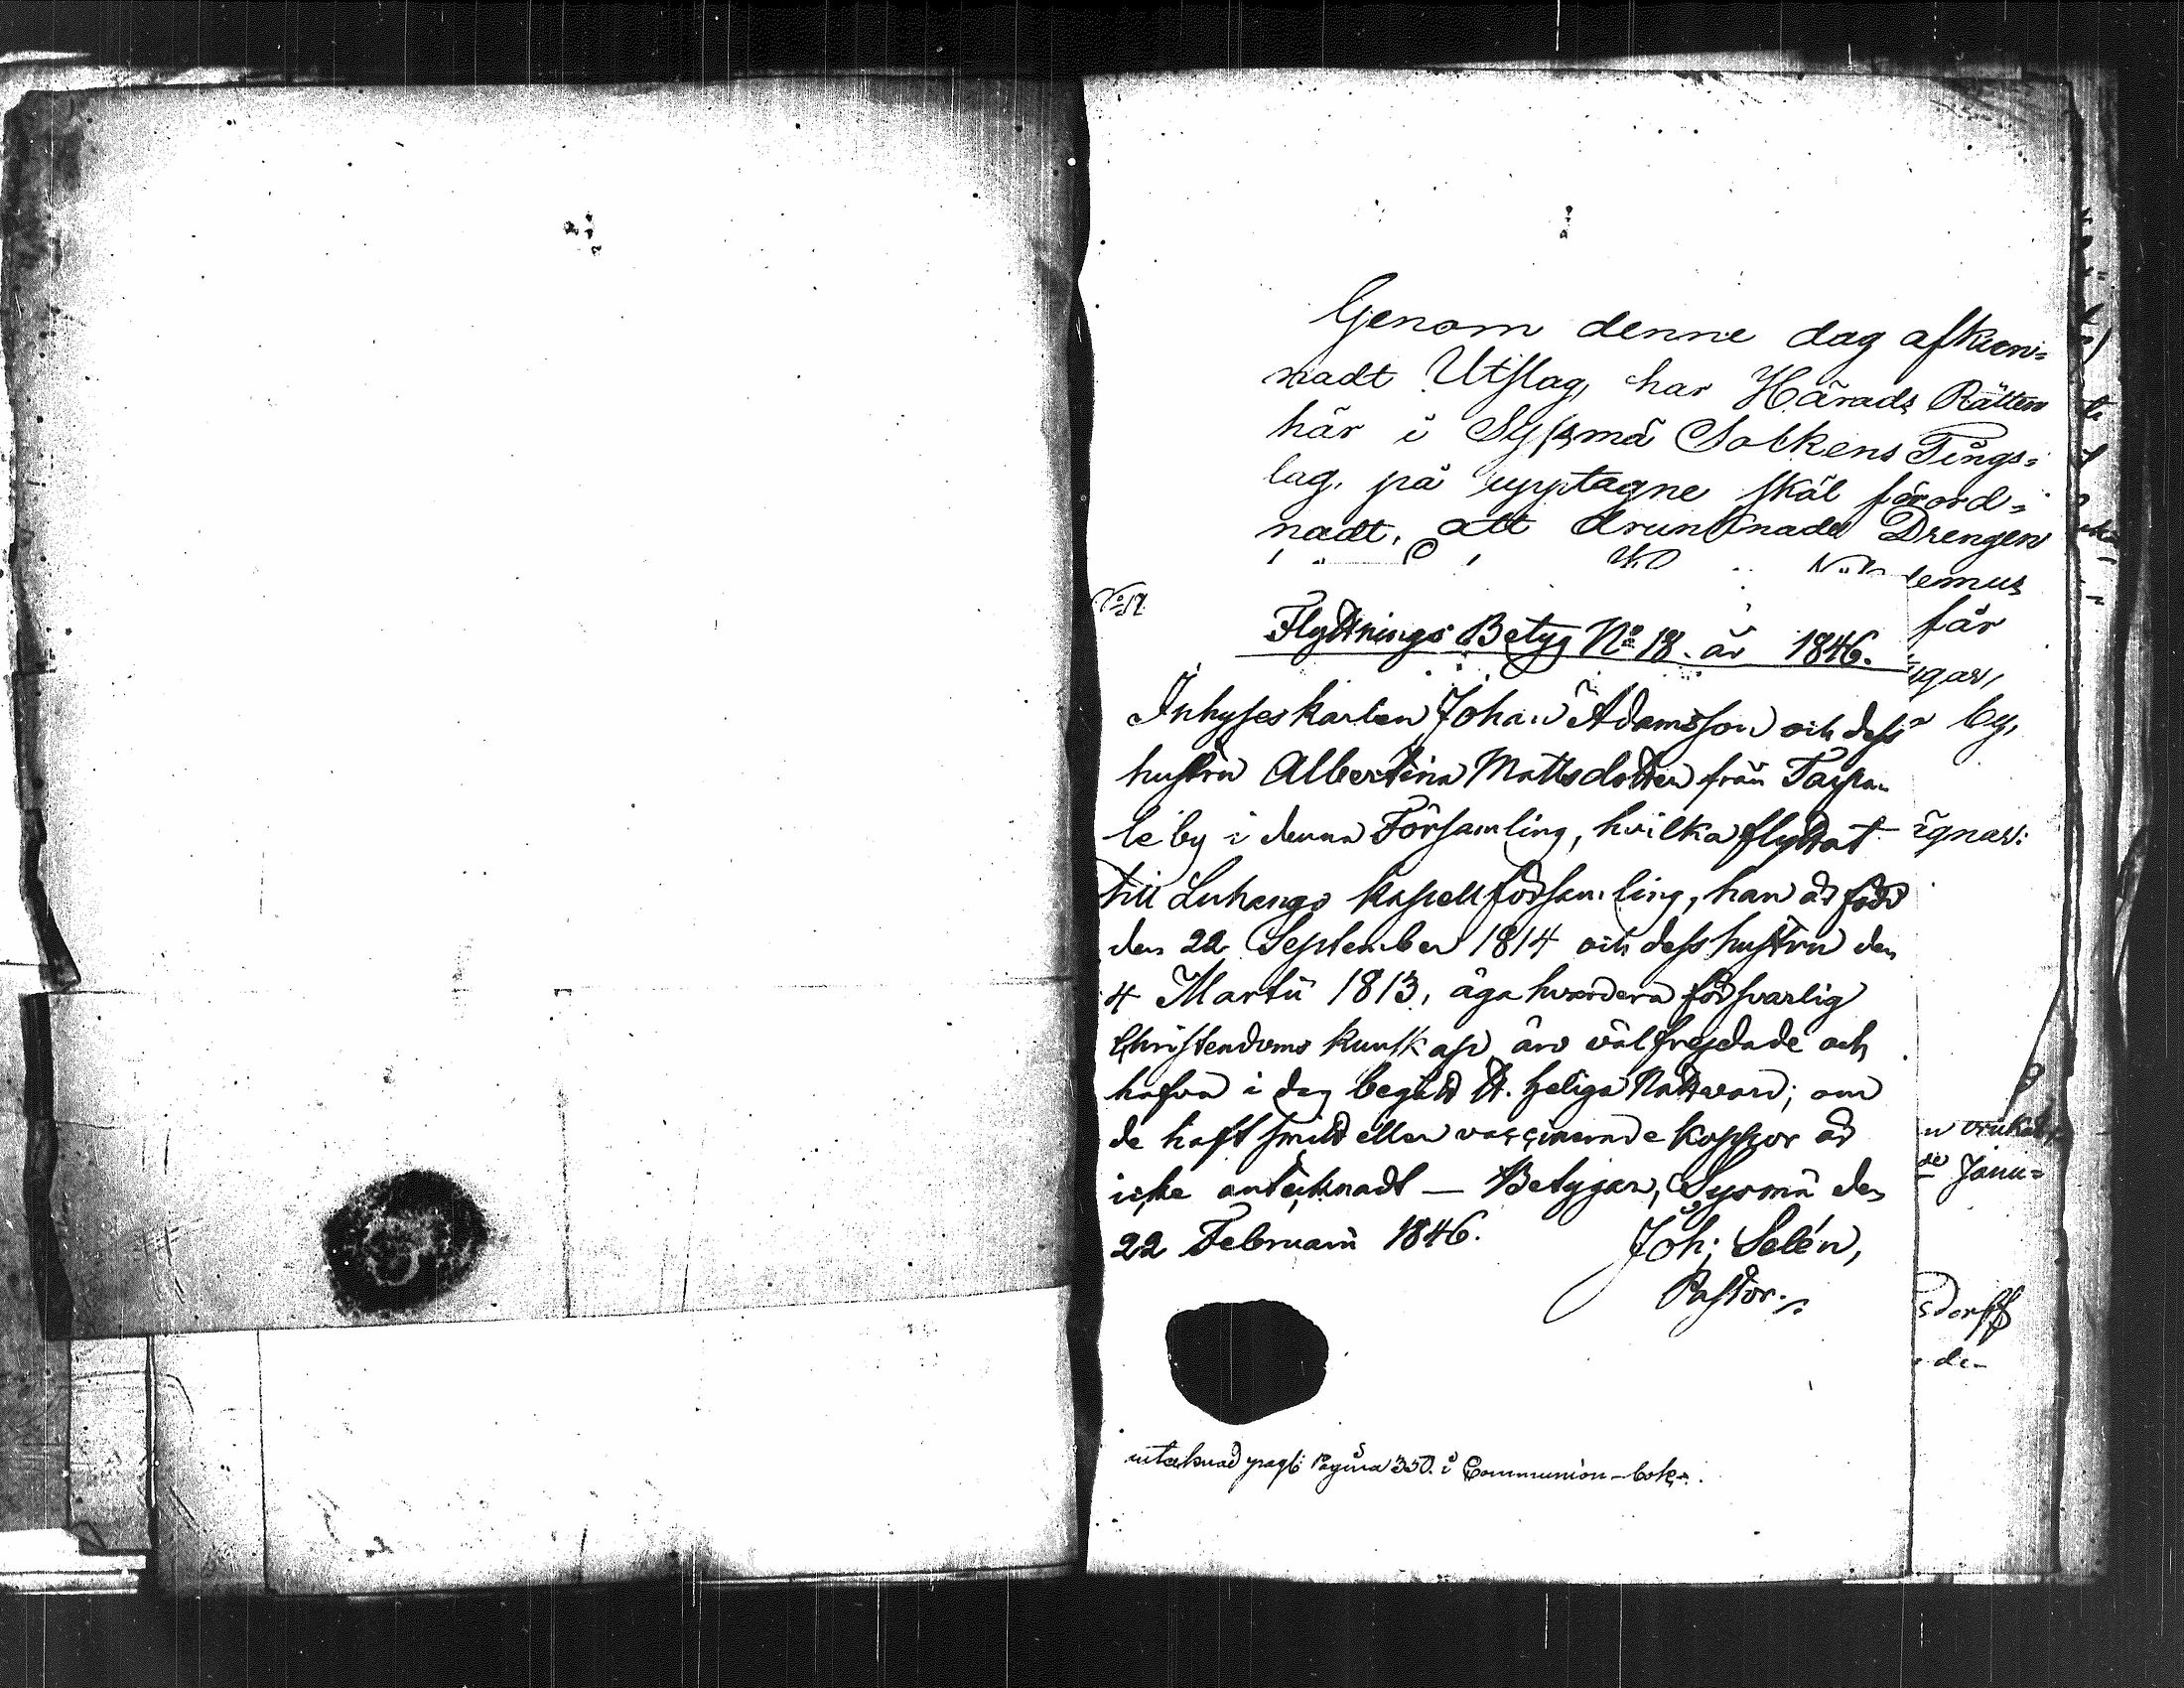 Genom denne dag afkun-
nadt Utslag, har Härads Rätten
här i Sysmä Sokens Tings-
lag, på upptagne skäl förord-
nadt, att drunknade Drengen
lemus
får
Flyttnings Betyg No 18. år 1846.
Inhyseskarlen Johan Adamsson och dess
by,
hustru Albertina Mattsdotter från Taipa-
le by i denna Församling, hvilka flyttat
till Luhango Kapellförsamling, han är född
den 22 September 1814 och dess hustru den
4 Martii 1813, äga hvardera försvarlig
Christendoms kunskap, äro välfrejdade och
hafva i dag begått H. heliga Nattvard; om
de haft smitt eller vaccinerade koppor är
icke antecknadt — Betygar, Sysmä den
Janu-
22 Februarii 1846. Joh; Selén,
Pastor.
sdorff
Pagina 350. i Communion-boken.